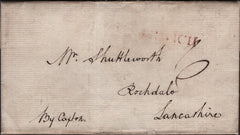 Mr. Shuttleworth
Rochdale
Lancashire
By Caxton.